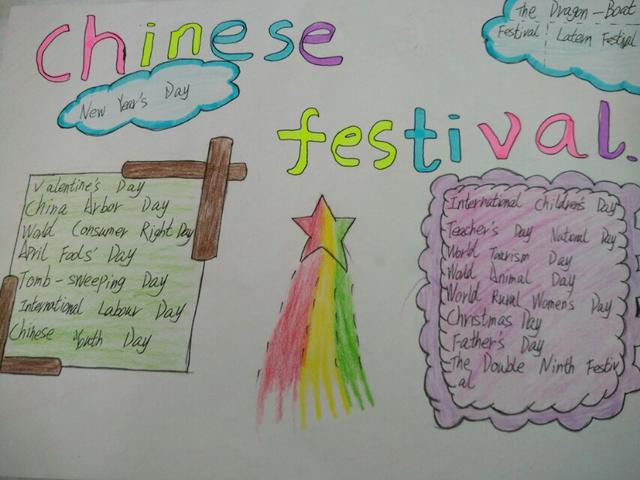 chinese
The Dragon-Boat
Festival Latern Festival
New Year's Day
festival.
Valentine's Day
China Arbor Day
World Consumer Right Day
April Fools' Day
Tomb-sweeping Day
International Labour Day
Chinese Youth Day
International Children's Day
Teacher's Day National Day
World Tourism Day
World Animal Day
World Rural Women's Day
Christmas Day
Father's Day
The Double Ninth Festiv
al